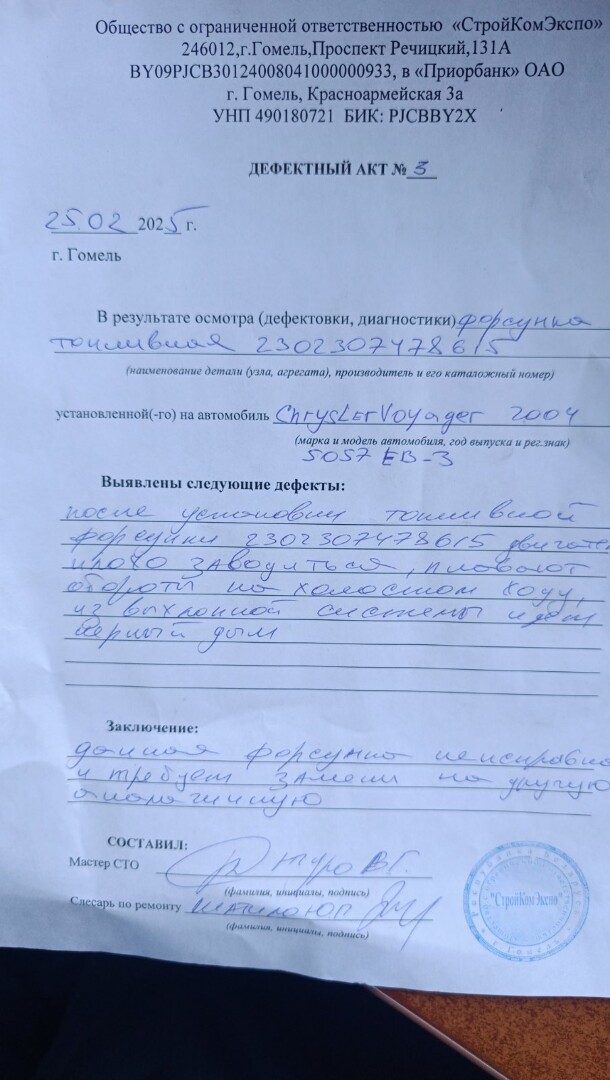 Общество с ограниченной ответственностью «СтройКомЭкспо»
246012,г.Гомель,Проспект Речицкий,131А
BY09PJCB30124008041000000933, в «Приорбанк» ОАО
г. Гомель, Красноармейская 3а
УНП 490180721 БИК: PJCBBY2X
ДЕФЕКТНЫЙ АКТ № 3
25.02 2025 г.
г. Гомель
В результате осмотра (дефектовки, диагностики) форсунка
топливная 23023074786/5
(наименование детали (узла, агрегата), производитель и его каталожный номер)
установленной(-го) на автомобиль Chrysler Voyager 2004
(марка и модель автомобиля, год выпуска и рег.знак)
5057 EB-3
Выявлены следующие дефекты:
после установки топливной
форсунки 23023074786/5 двигател
плохо заводиться, плавают
обороты на холостом ходу,
из выхлопной системы идет
черный дым
Заключение:
данная форсунка неисправна
и требует замены на другую
аналогичную
СОСТАВИЛ:
Мастер СТО
(фамилия, инициалы, подпись)
Слесарь по ремонту
(фамилия, инициалы, подпись)
"СтройКомЭкспо"